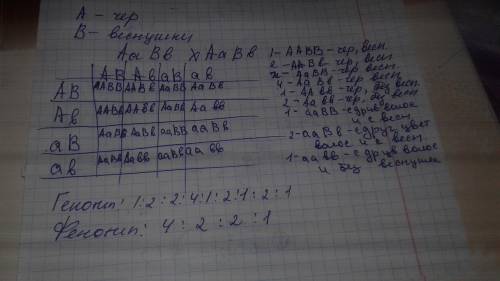 А - чер
В - веснушки
АаВв х АаВв
АВ Ав аВ ав
АВ ААВВ ААВв АаВВ АаВв
Ав ААВв ААвв АаВв Аавв
аВ АаВВ АаВв ааВВ ааВв
ав АаВв Аавв ааВв аавв
1 - ААВВ - чер, весн.
2 - ААВв - чер, весн
2 - АаВВ - чер весн.
4 - АаВв - чер весн.
1 - ААвв - чер, без весн.
2 - Аавв - чер, без весн
1 - ааВВ - с друг волос
и с весн.
2 - ааВв - с друг. цвет
волос и с весн.
1 - аавв - с друг волос
и без веснушек
Генотип: 1:2:2:4:1:2:1:2:1
Фенотип: 4:2:2:1